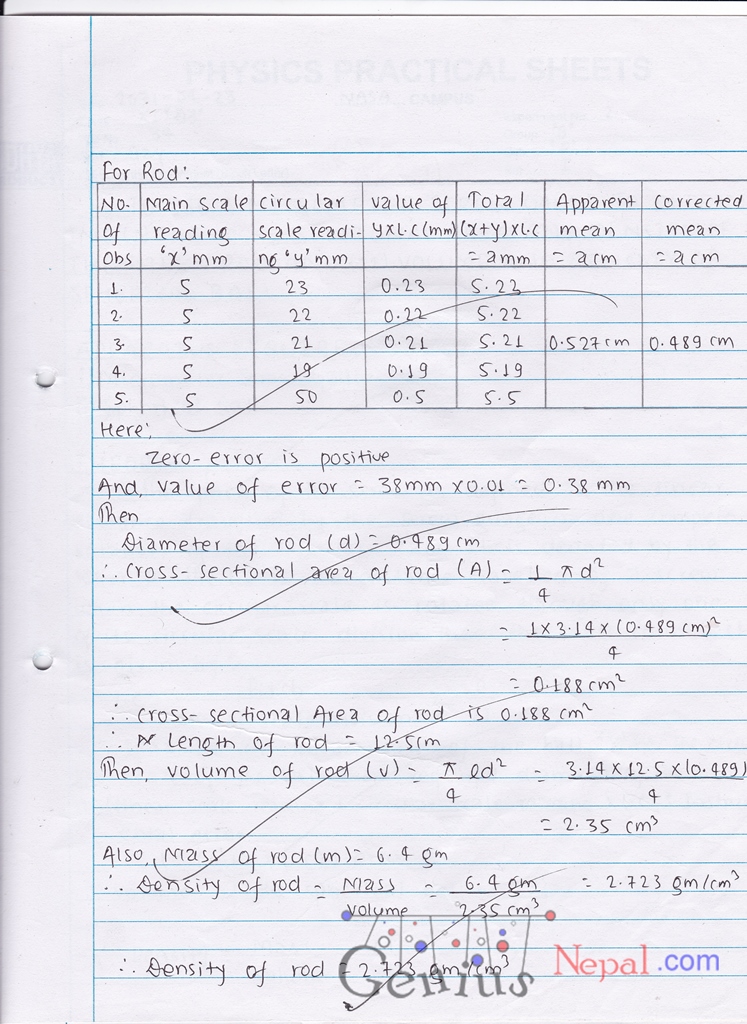 PHYSICS PRACTICAL SHEETS
For Rod:
No. Of Obs | Main scale reading 'x' mm | circular scale readi-ng 'y' mm | value of y×L.C (mm) | Total (x+y)×L.C = a mm | Apparent mean = a cm | Corrected mean = a cm
1. 5 23 0.23 5.22
2. 5 22 0.22 5.22
3. 5 21 0.21 5.21 0.527 cm 0.489 cm
4. 5 19 0.19 5.19
5. 5 50 0.5 5.5
Here;
Zero-error is positive
And, value of error = 38mm ×0.01 = 0.38 mm
Then
Diameter of rod (d) = 0.489 cm
∴ Cross-sectional area of rod (A) = 1/4 πd²
= 1×3.14×(0.489 cm)²/4
= 0.188 cm²
∴ Cross-sectional Area of rod is 0.188 cm²
∴ Length of rod = 12.5cm
Then, volume of rod (v) = π/4 ld² = 3.14×12.5×(0.489)/4
= 2.35 cm³
Also, Mass of rod (m) = 6.4 gm
∴ Density of rod = Mass/volume = 6.4 gm/2.35 cm³ = 2.723 gm/cm³
∴ Density of rod = 2.723 gm/cm³
Genius Nepal.com